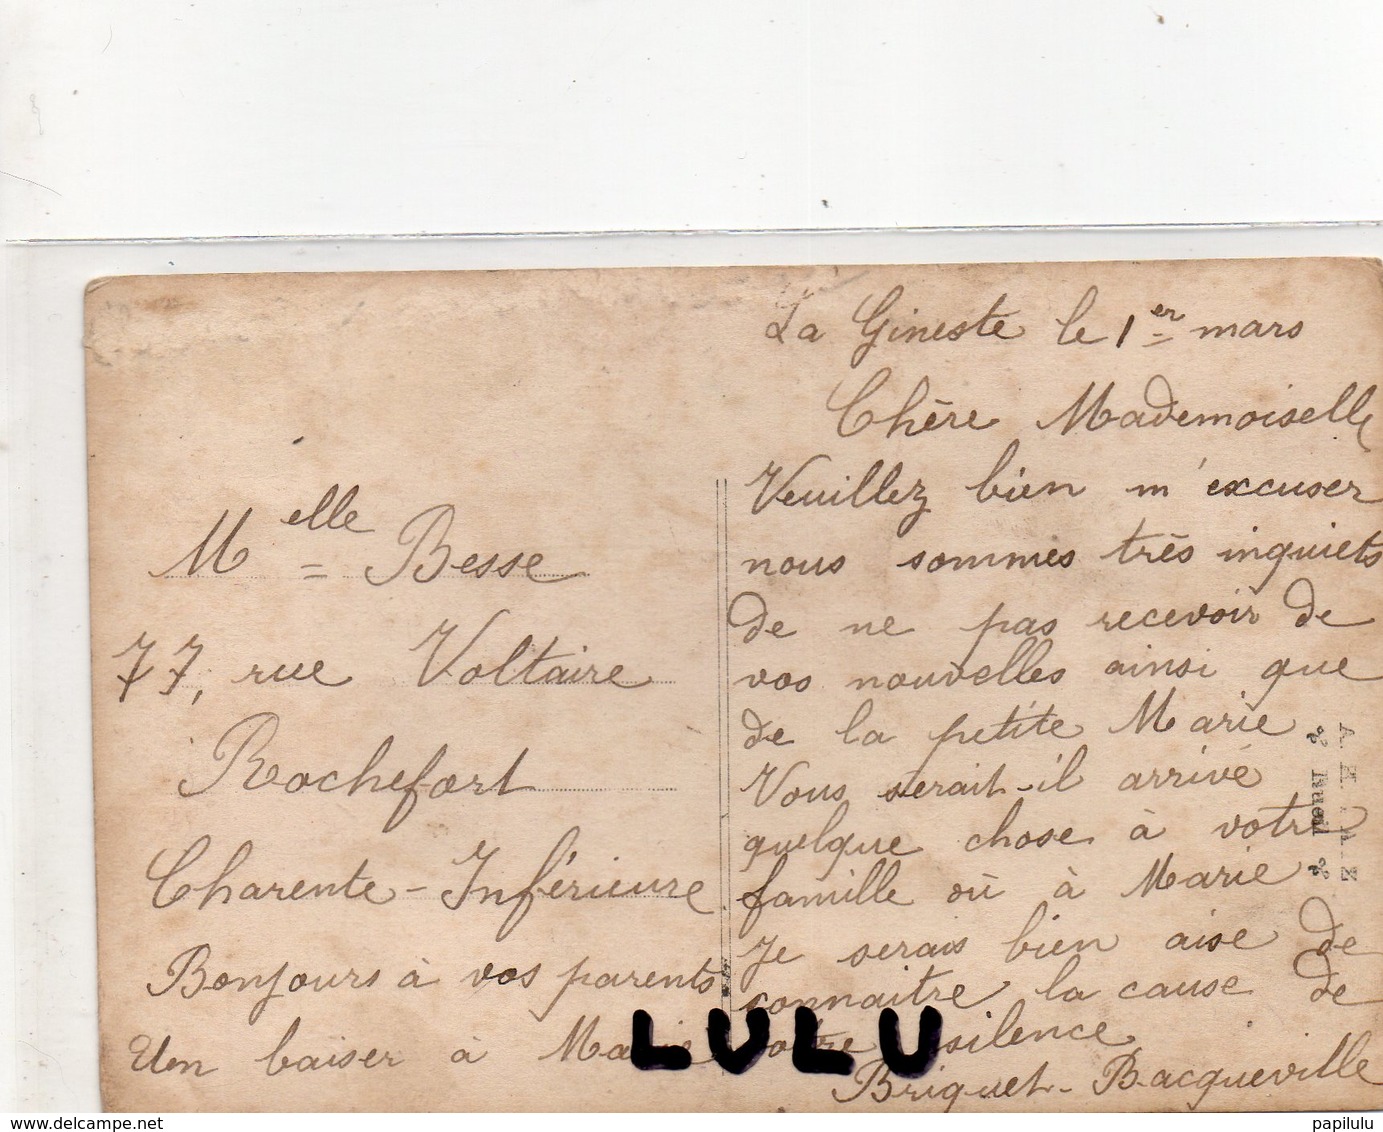 La Gineste le 1er mars
Chère Mademoiselle
Veuillez bien m'excuser
nous sommes très inquiets
de ne pas recevoir de
vos nouvelles ainsi que
de la petite Marie
Vous serait-il arrivé
quelque chose à votre
famille où à Marie
Je serais bien aise de
connaitre la cause de
votre silence
Briquet-Bacqueville
Melle Besse
77, rue Voltaire
Rochefort
Charente-Inférieure
Bonjours à vos parents
Un baiser à Marie
LULU
delcampe.net
papilulu